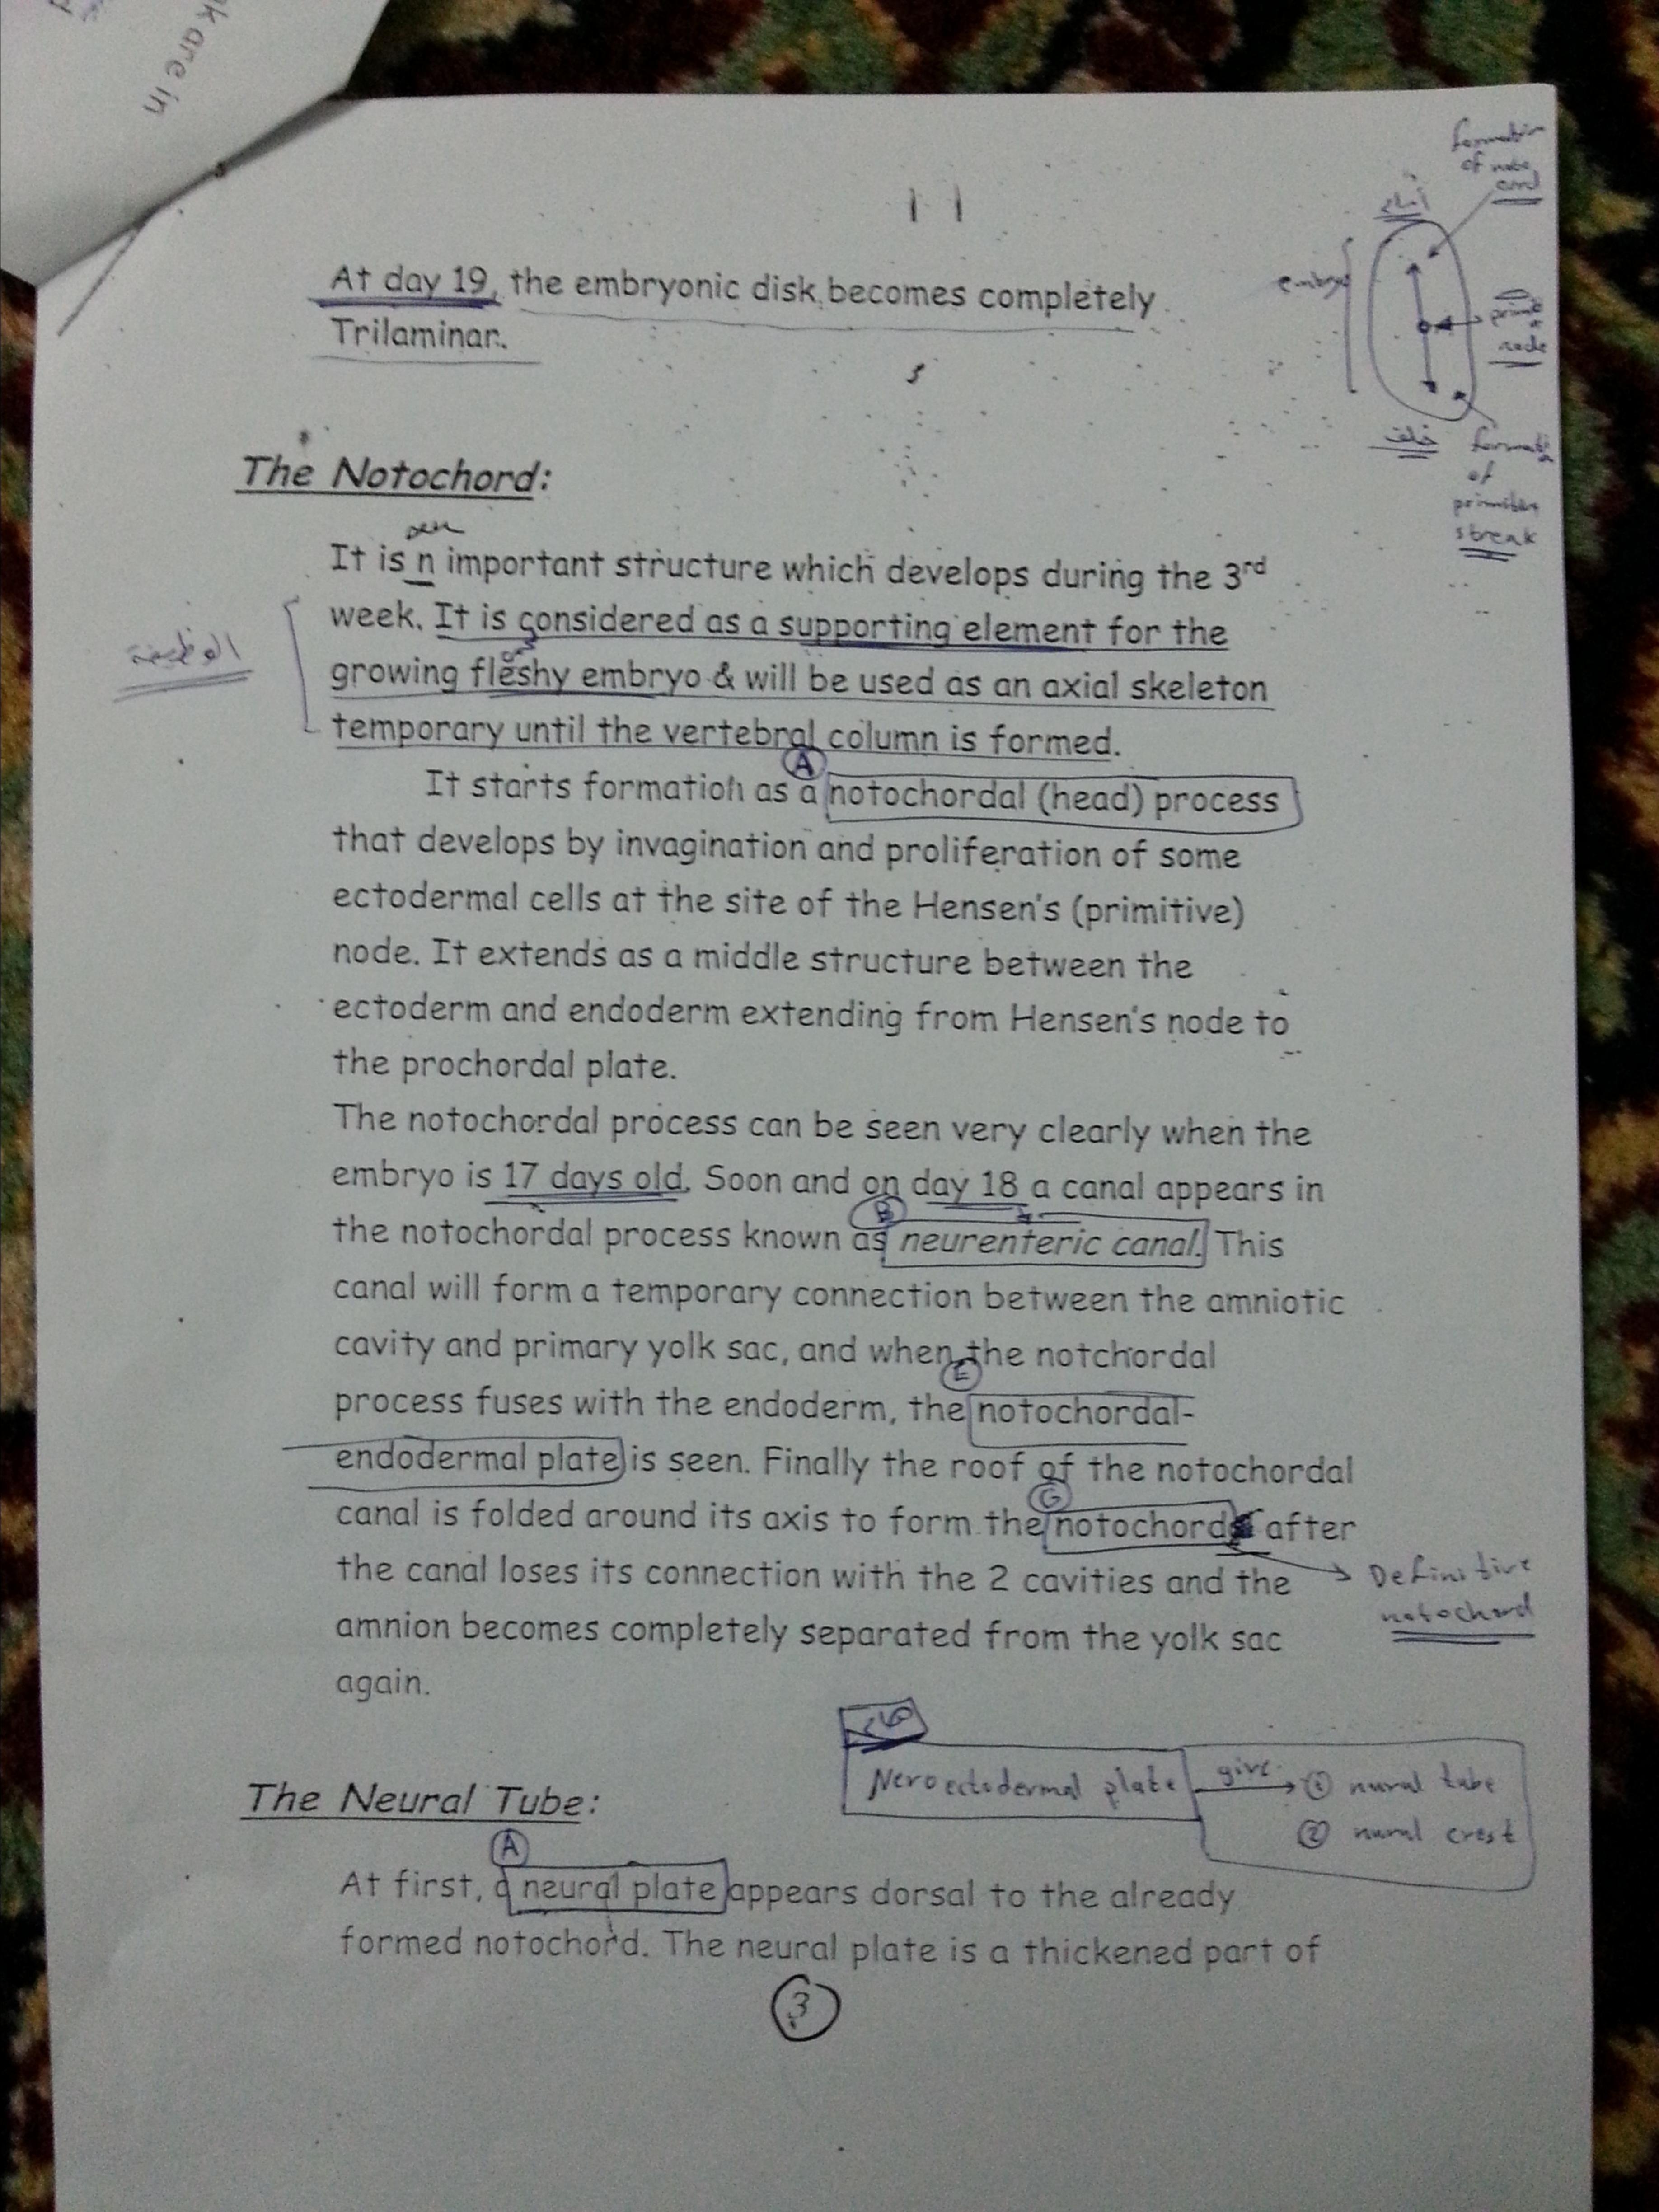 k are in
formation
of noto
cord
أمام
embryo
node
خلف
formati
of
primitive
streak
At day 19, the embryonic disk becomes completely
Trilaminar.
The Notochord:
It is n important structure which develops during the 3rd
week. It is considered as a supporting element for the
الوظيفة
growing fleshy embryo & will be used as an axial skeleton
temporary until the vertebral column is formed.
A
It starts formation as a notochordal (head) process
that develops by invagination and proliferation of some
ectodermal cells at the site of the Hensen's (primitive)
node. It extends as a middle structure between the
ectoderm and endoderm extending from Hensen's node to
the prochordal plate.
The notochordal process can be seen very clearly when the
embryo is 17 days old. Soon and on day 18 a canal appears in
B
the notochordal process known as neurenteric canal. This
canal will form a temporary connection between the amniotic
cavity and primary yolk sac, and when the notchordal
E
process fuses with the endoderm, the notochordal-
endodermal plate is seen. Finally the roof of the notochordal
G
canal is folded around its axis to form the notochord after
the canal loses its connection with the 2 cavities and the
Definitive
notochord
amnion becomes completely separated from the yolk sac
again.
هام
Neroectodermal plate give → ① nural tube
② nural crest
The Neural Tube:
A
At first, a neural plate appears dorsal to the already
formed notochord. The neural plate is a thickened part of
3